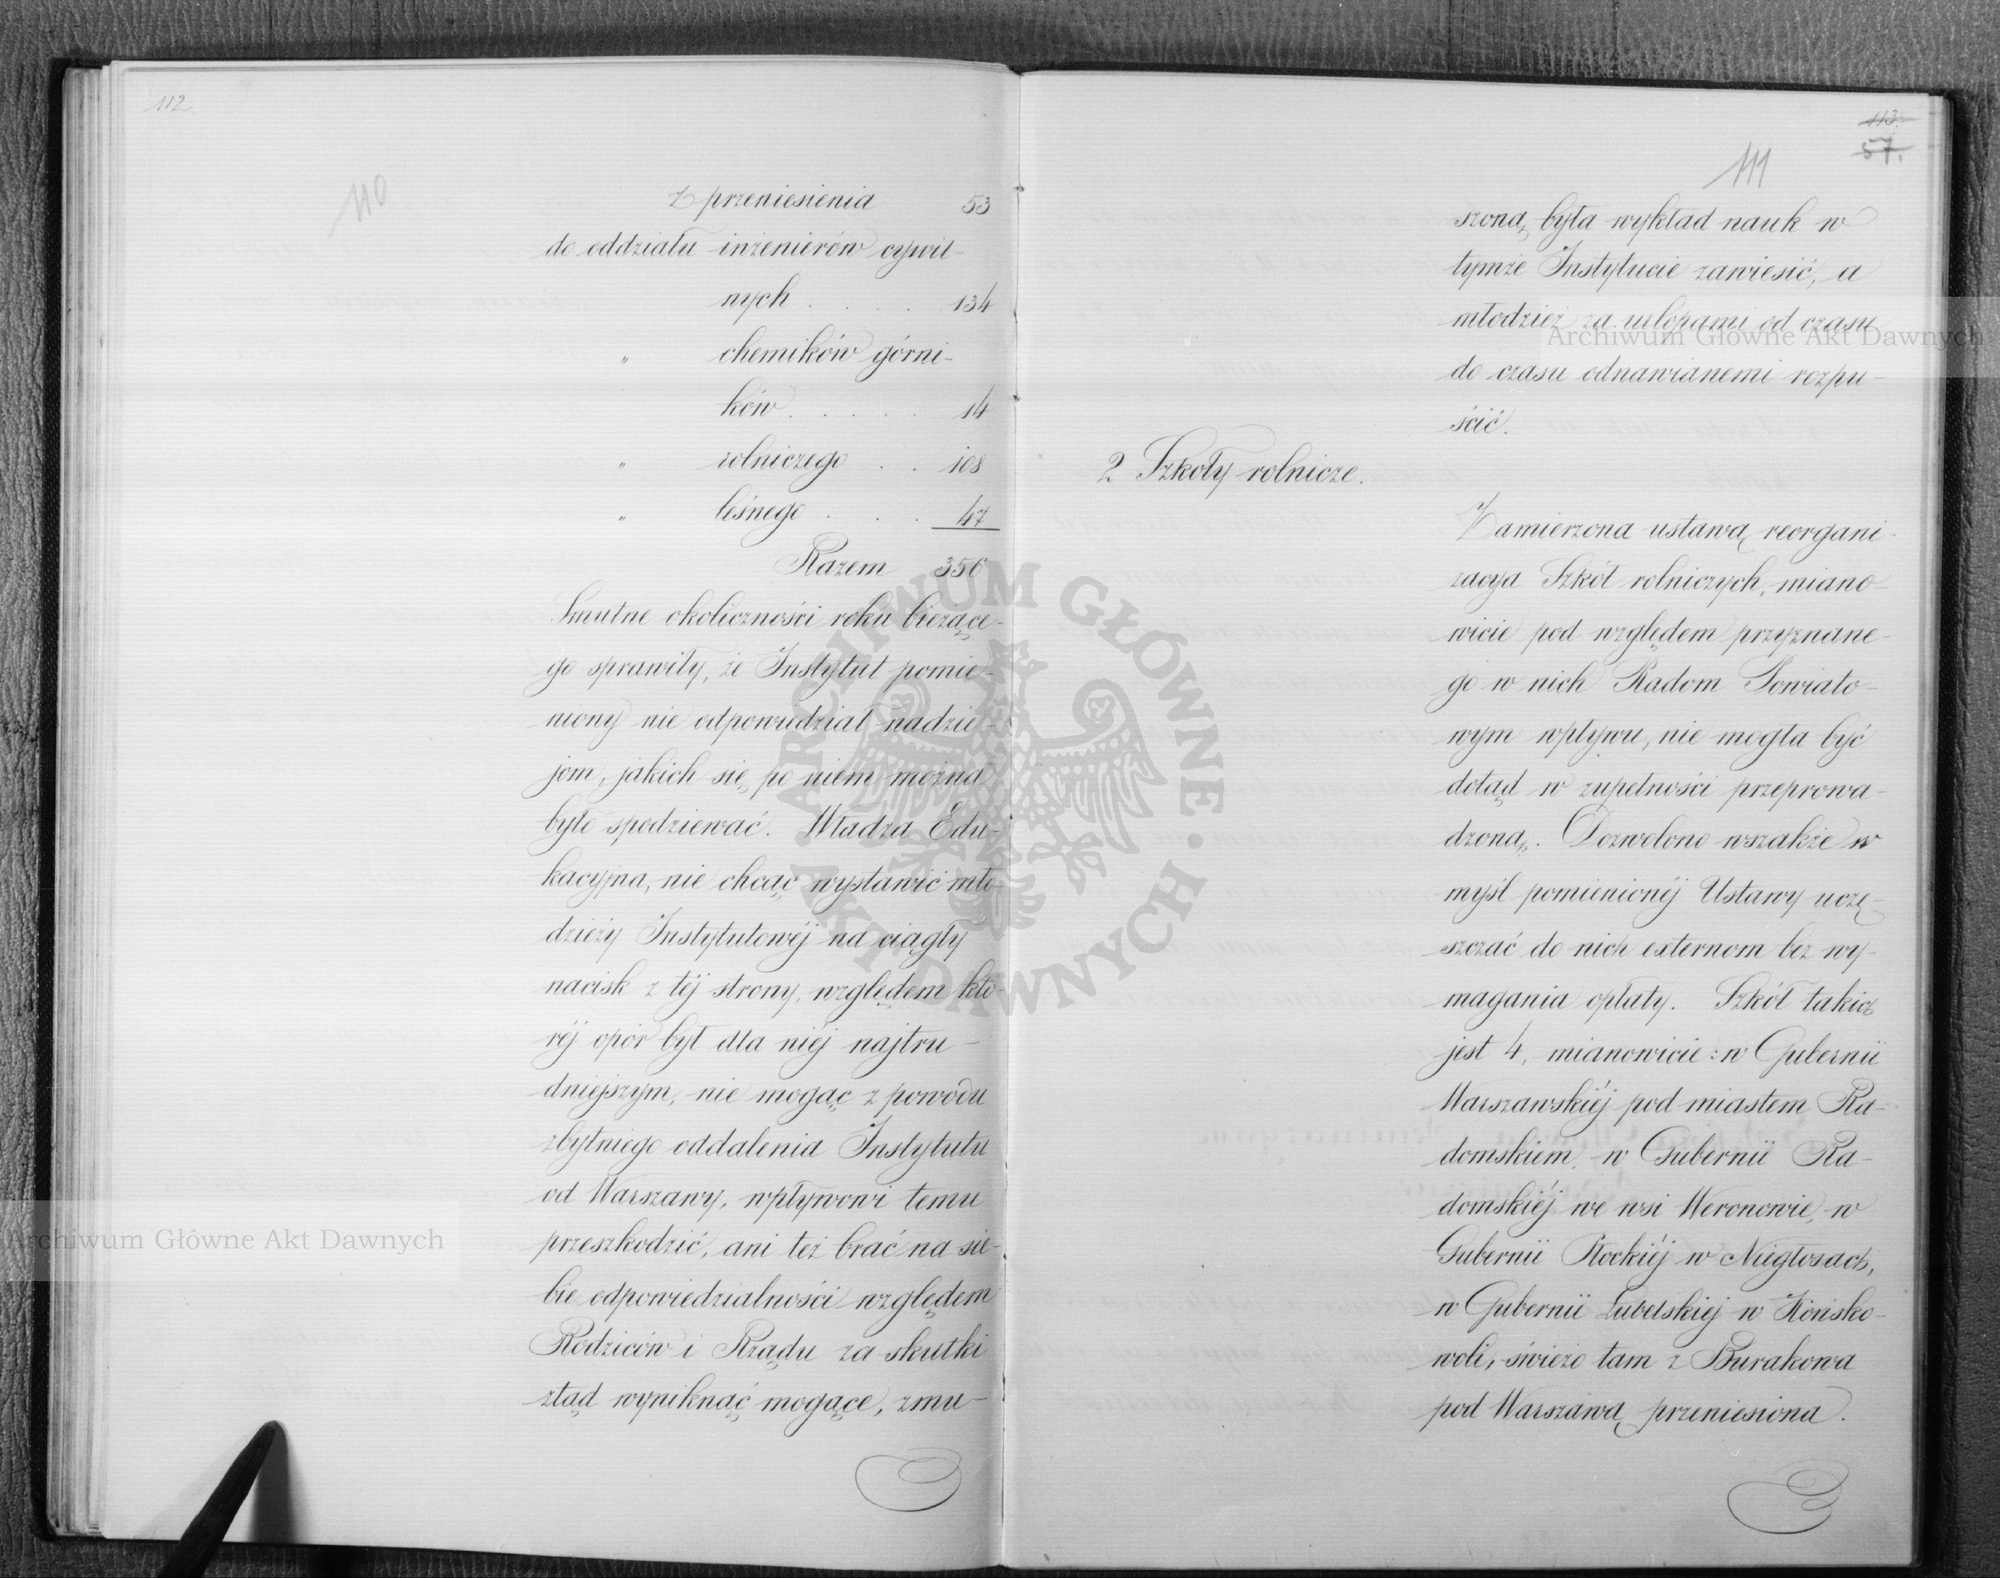 112
110
Z przeniesienia 53
do oddziału inżenierów cywil-
nych . . . . 134
" chemików górni-
ków . . . . . 14
" rolniczego . . 108
" leśnego . . . 47
Razem 356
Smutne okoliczności roku bieżące-
go sprawiły, że Instytut pomie-
niony nie odpowiedział nadzie-
jom, jakich się po niem można
było spodziewać. Władza Edu-
kacyjna, nie chcąc wystawić mło-
dzieży Instytutowéj na ciągły
nacisk z téj strony, względem któ-
réj opór był dla niéj najtru-
dniejszym, nie mogąc z powodu
zbytniego oddalenia Instytutu
od Warszawy, wpływowi temu
przeszkodzić, ani też brać na sie-
bie odpowiedzialności względem
Rodziców i Rządu za skutki
ztąd wyniknąć mogące, zmu-
113.
57.
111
szoną była wykład nauk w
tymże Instytucie zawiesić, a
młodzież za urlopami od czasu
do czasu odnawianemi rozpu-
ścić.
2 Szkoły rolnicze.
Zamierzona ustawą reorgani-
zacya Szkół rolniczych, miano-
wicie pod względem przyznane-
go w nich Radom Powiato-
wym wpływu, nie mogła być
dotąd w zupełności przeprowa-
dzoną. Dozwolono wszakże w
myśl pomienionéj Ustawy uczę-
szczać do nich externom bez wy-
magania opłaty. Szkół takich
jest 4, mianowicie: w Gubernii
Warszawskiéj pod miastem Ra-
domskiem, w Gubernii Ra-
domskiéj we wsi Weronowie, w
Gubernii Płockiéj w Niegłosach,
w Gubernii Lubelskiéj w Końsko-
woli, świeżo tam z Burakowa
pod Warszawą przeniesiona.
Archiwum Główne Akt Dawnych
Archiwum Główne Akt Dawnych
ARCHIWUM GŁÓWNE · AKT DAWNYCH ·